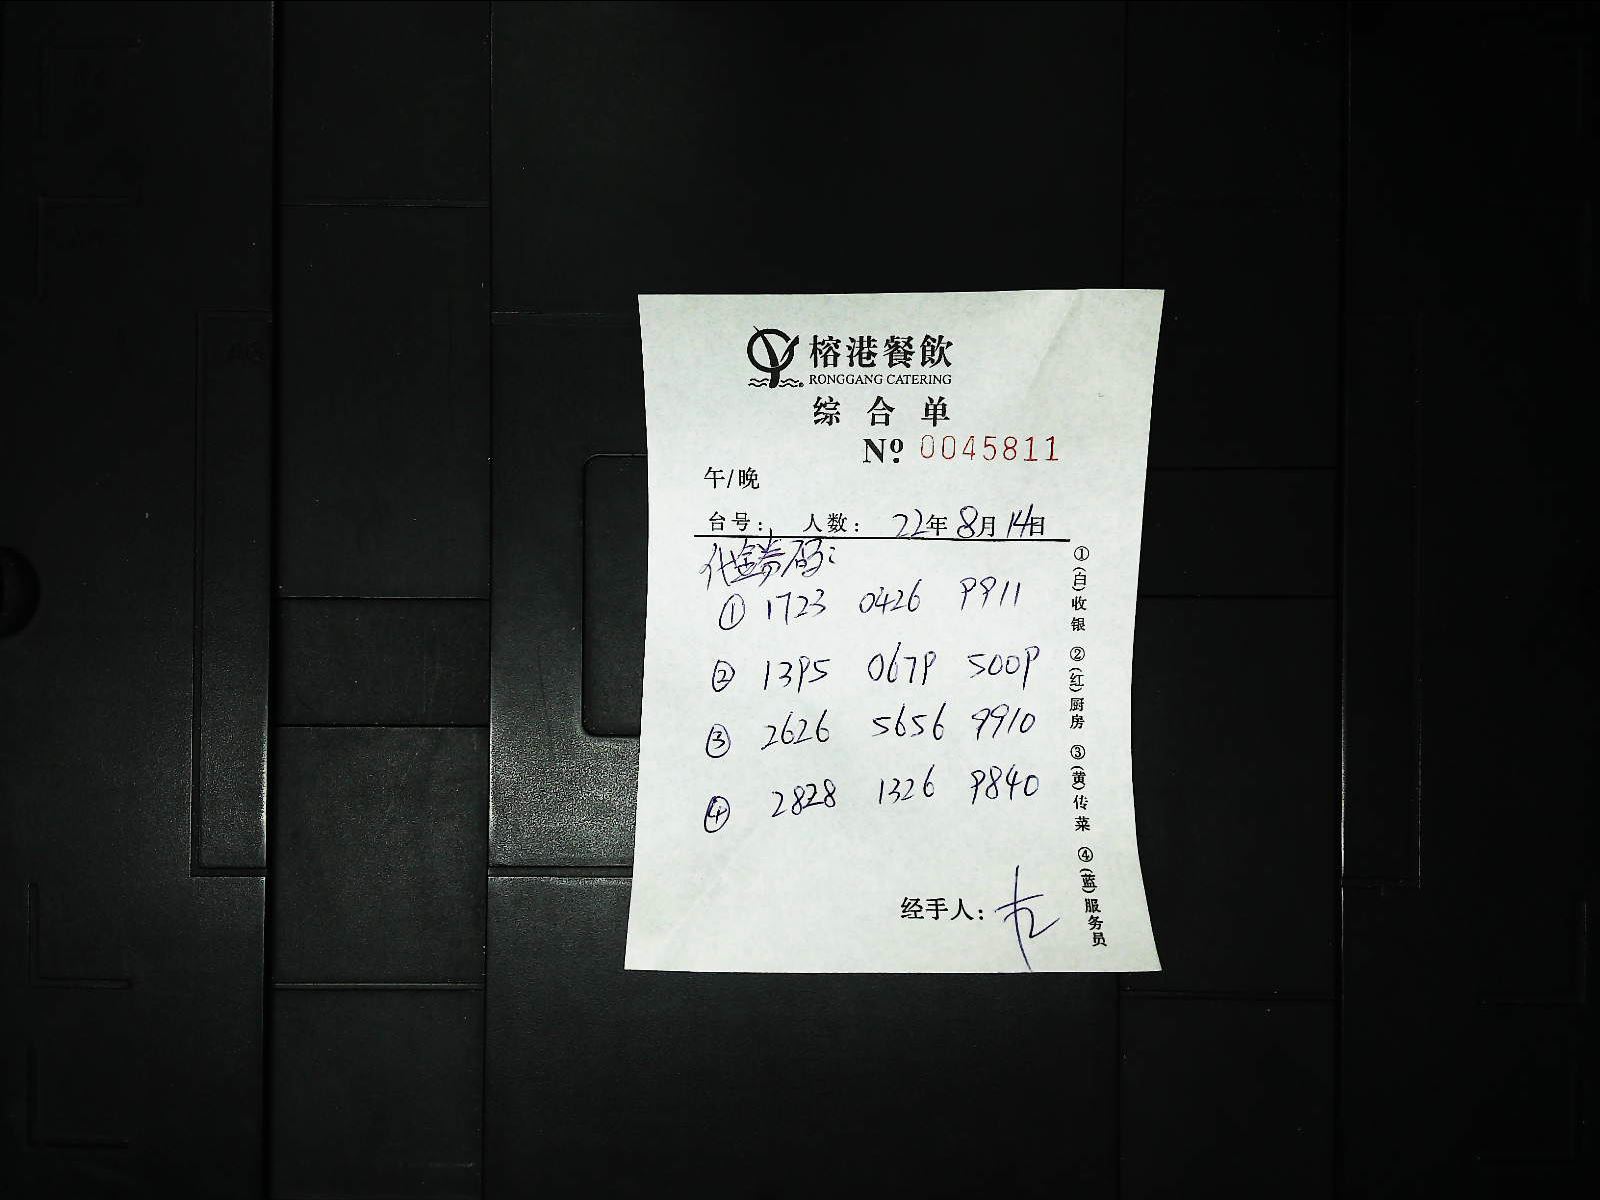 榕港餐飲
RONGGANG CATERING
综合单
Nº 0045811
午/晚
台号: 人数: 22年8月14日
代金券码:
① 1723 0426 9911
② 1395 0679 5009
③ 2626 5656 9910
④ 2828 1326 9840
经手人:
①(白)收银 ②(红)厨房 ③(黄)传菜 ④(蓝)服务员